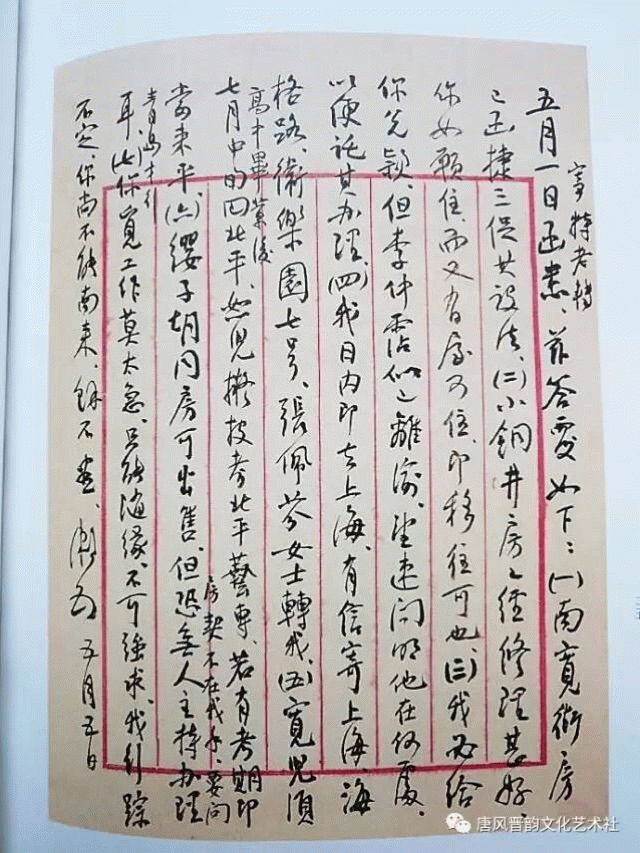 五月一日函悉、兹答覆如下：(一)南寬街房
已函捷三促其設法、(二)小銅井房已經修理甚好、
你如願住、而又有屋可住、即移住可也、(三)我為給
你兄穎、但李仲霑似已離渝、望速問明他在何處、
以便託其办理、(四)我日内即去上海、有信寄上海、海
格路、衛樂園七号、張佩芬女士轉我、(五)寬兒須
高中畢業後
七月中的回北平、如兒擬投考北平藝專、若有考期即
當来平、(六)纓子胡同房可出售、但恐無人主持办理
房契不在我手、要問
青島才行
耳、(七)你覓工作莫太急、只能隨緣、不可強求、我行踪
不定、你尚不能南来、餘不盡、
五月五日
唐风晋韵文化艺术社